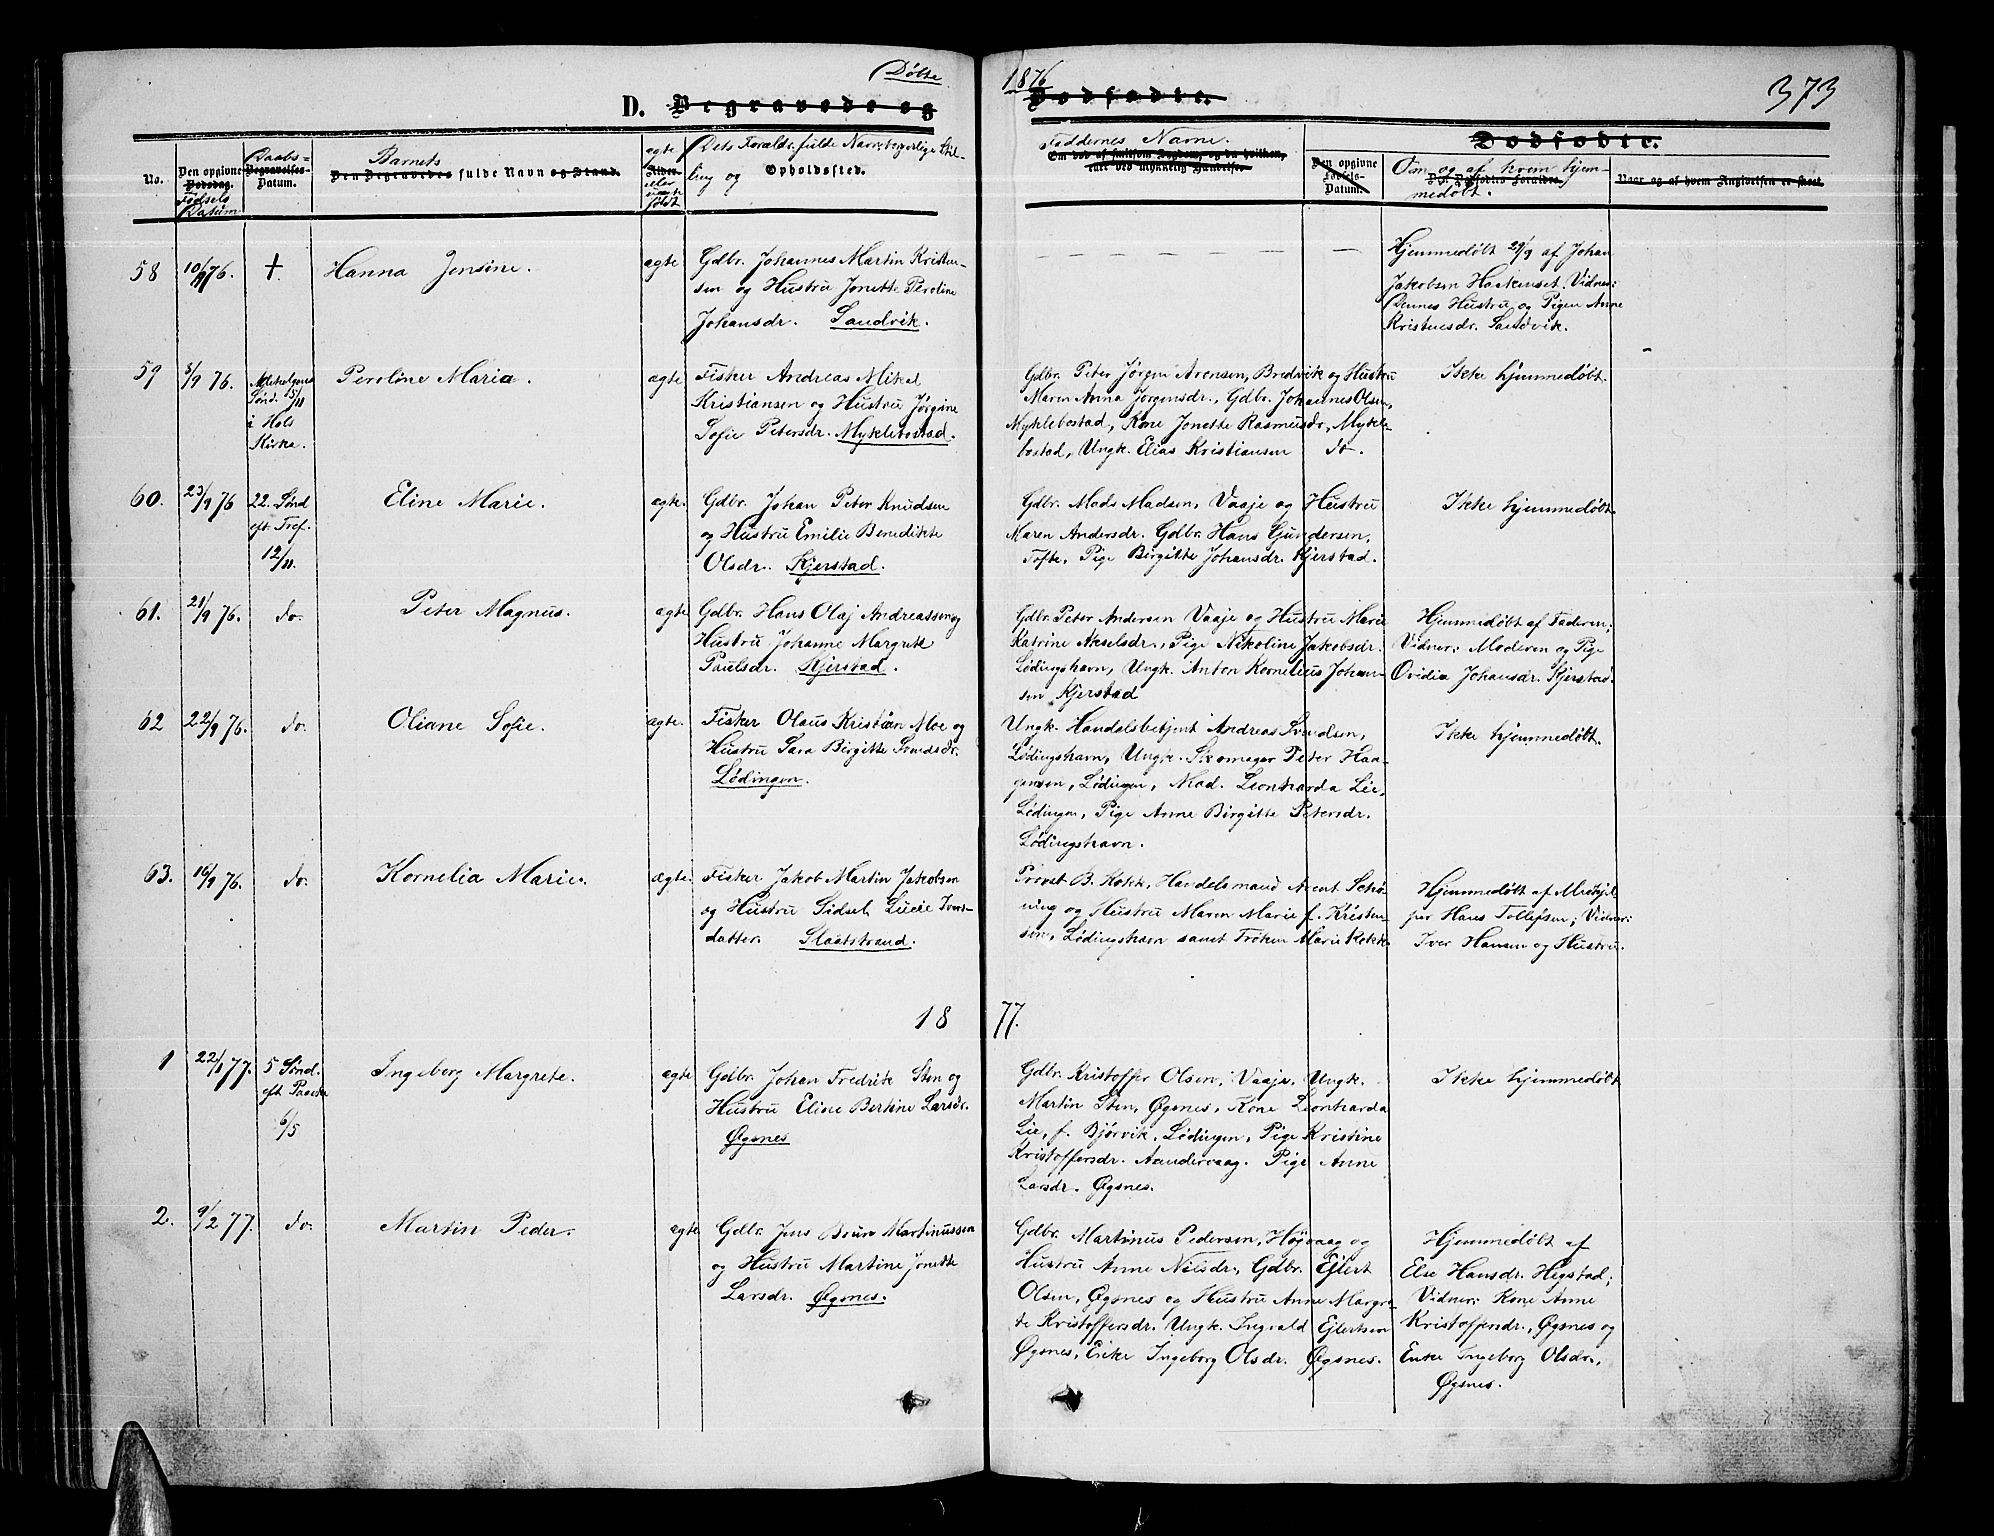 Døbte
1876
373
D. Begravede og
Dødfødte.
Dødfødte.
No.
Den opgivne
Dødsdag.
Fødsels
Datum
Daabs-
Begravelses-
Datum.
Barnets
Den Begravedes fulde Navn og Stand.
ægte
Alder.
eller
uægte
født
Dets Forældr. fulde Navn, borgerlige Stil-
ling og Opholdssted.
Faddernes Navne.
Om død af smitsom Sygdom, og da hvilken,
eller ved ulykkelig Hændelse
Den opgivne
Fødsels-
Datum.
Om og af hvem hjem-
De Dødfødtes Forældre.
medøbt.
Naar og af hvem Angivelsen er skeet
58
76.
+
Hanna Jensine.
ægte
Gdbr. Johannes Martin Kristen-
sen og Hustru Jonette Peroline
Johansdr. Sandvik.
Hjemmedøbt 29/9 af Johan
Jakobsen Haakenset. Vidner:
Dennes Hustru og Pigen Anne
Kristensdr. Sandvik.
59
3/9 76.
Sønd. 15/11
i Hols
Kirke.
Peroline Maria.
ægte
Fisker Andreas Mikal
Kristiansen og Hustru Jørgine
Sofie Petersdr. Myklebostad.
Gdbr. Peter Jørgen Arensen, Bredvik og Hustru
Maren Anna Jørgensdr., Gdbr. Johannes Olsen,
Myklebostad, Kone Jonette Rasmusdr, Mykle-
bostad, Ungk. Elias Kristiansen do.
Ikke hjemmedøbt.
60.
23/9 76
22. Sønd
eft. Tref.
12/11
Eline Marie.
ægte.
Gdbr. Johan Peter Knudsen
og Hustru Emilie Benedikte
Olsdr. Kjerstad.
Gdbr. Mads Madsen, Vaaje og Hustru
Maren Andersdr. Gdbr. Hans Gundersen,
Tofte, Pige Birgitte Johansdr. Kjerstad.
Ikke hjemmedøbt.
61.
21/9 76.
do.
Peter Magnus.
ægte
Gdbr. Hans Olaj Andreassen og
Hustru Johanne Margrete
Paulsdr. Kjerstad.
Gdbr. Peter Andersen Vaaje og Hustru Marie
Katrine Akselsdr., Pige Nikoline Jakobsdr.
Lødingshavn, Ungk. Anton Kornelius Johan-
sen Kjerstad
Hjemmedøbt af Faderen;
Vidner: Moderen og Pige
Ovidia Johansdr. Kjerstad.
62
22/9 76.
do.
Oliane Sofie.
ægte.
Fisker Olaus Kristian Moe og
Hustru Sara Birgitte Svendsdr.
Lødingen.
Ungk. Handelsbetjent Andreas Svendsen,
Lødingshavn, Ungk. Skomager Peter Haa-
gensen, Lødingen, Mad. Leonharda Lie,
Lødingen, Pige Anne Birgitte Petersdr.
Lødingshavn.
Ikke hjemmedøbt.
63.
16/9 76.
do.
Kornelia Marie.
ægte.
Fisker Jakob Martin Jakobsen
og Hustru Sidsel Lucie Ivers-
datter. Slaatstrand.
Provst B. Kokk, Handelsmand Arent Schø-
ning og Hustru Maren Marie f. Kristen-
sen, Lødingshavn samt Frøken Marie Kokk.
Hjemmedøbt af Medhjæl-
per Hans Tollefsen; Vidner:
Iver Hansen og Hustru.
1877.
1
22/1 77.
5 Sønd.
eft Paaske
6/5
Ingeborg Margrete.
ægte
Gdbr. Johan Fredrik Sten og
Hustru Eline Bertine Larsdr.
Øgsnes
Gdbr. Kristoffer Olsen, Vaaje, Ungk.
Martin Sten, Øgsnes, Kone Leonharda
Lie, f. Bjørvik, Lødingen, Pige Kristine
Kristoffersdr. Aandervaag. Pige Anne
Larsdr. Øgsnes.
Ikke hjemmedøbt
2.
9/2 77.
do.
Martin Peder.
ægte
Gdbr. Jens Bruun Martinussen
og Hustru Martine Jonette
Larsdr. Øgsnes.
Gdbr. Martinus Pedersen, Høgvaag og
Hustru Anne Nilsdr., Gdbr. Ejlert
Olsen, Øgsnes og Hustru Anne Margre-
te Kristoffersdr. Ungk. Ingvald Ejlertsen
Øgsnes, Enke Ingeborg Olsdr. Øgsnes.
Hjemmedøbt af
Else Hansdr. Hegstad;
Vidner: Kone Anne
Kristoffersdr., Øgsnes og
Enke Ingeborg Olsdr.,
Øgsnes.